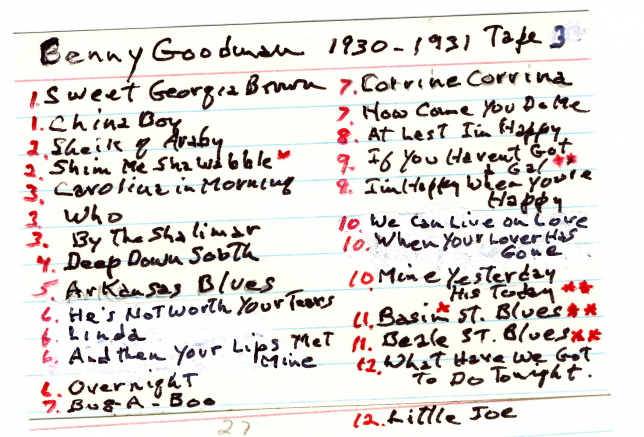 Benny Goodman 1930-1931 Tape 3
1. Sweet Georgia Brown
1. China Boy
2. Sheik of Araby
2. Shim Me Sha Wabble*
3. Carolina in Morning
3. Who
3. By The Shalimar
4. Deep Down South
5. Arkansas Blues
6. He's Not Worth Your Tears
6. Linda
6. And then Your Lips Met
Mine
6. Overnight
7. Bug-A-Boo
7. Corrine Corrina
7. How Come You Do Me
8. At Last I'm Happy
9. If You Haven't Got
a Gal**
9. I'm Happy When You're
Happy
10. We Can Live on Love
10. When Your Lover Has
Gone
10 Mine Yesterday
His Today **
11. Basin* St. Blues**
11. Beale ST. Blues**
12. What Have We Got
To Do Tonight.
12. Little Joe
27